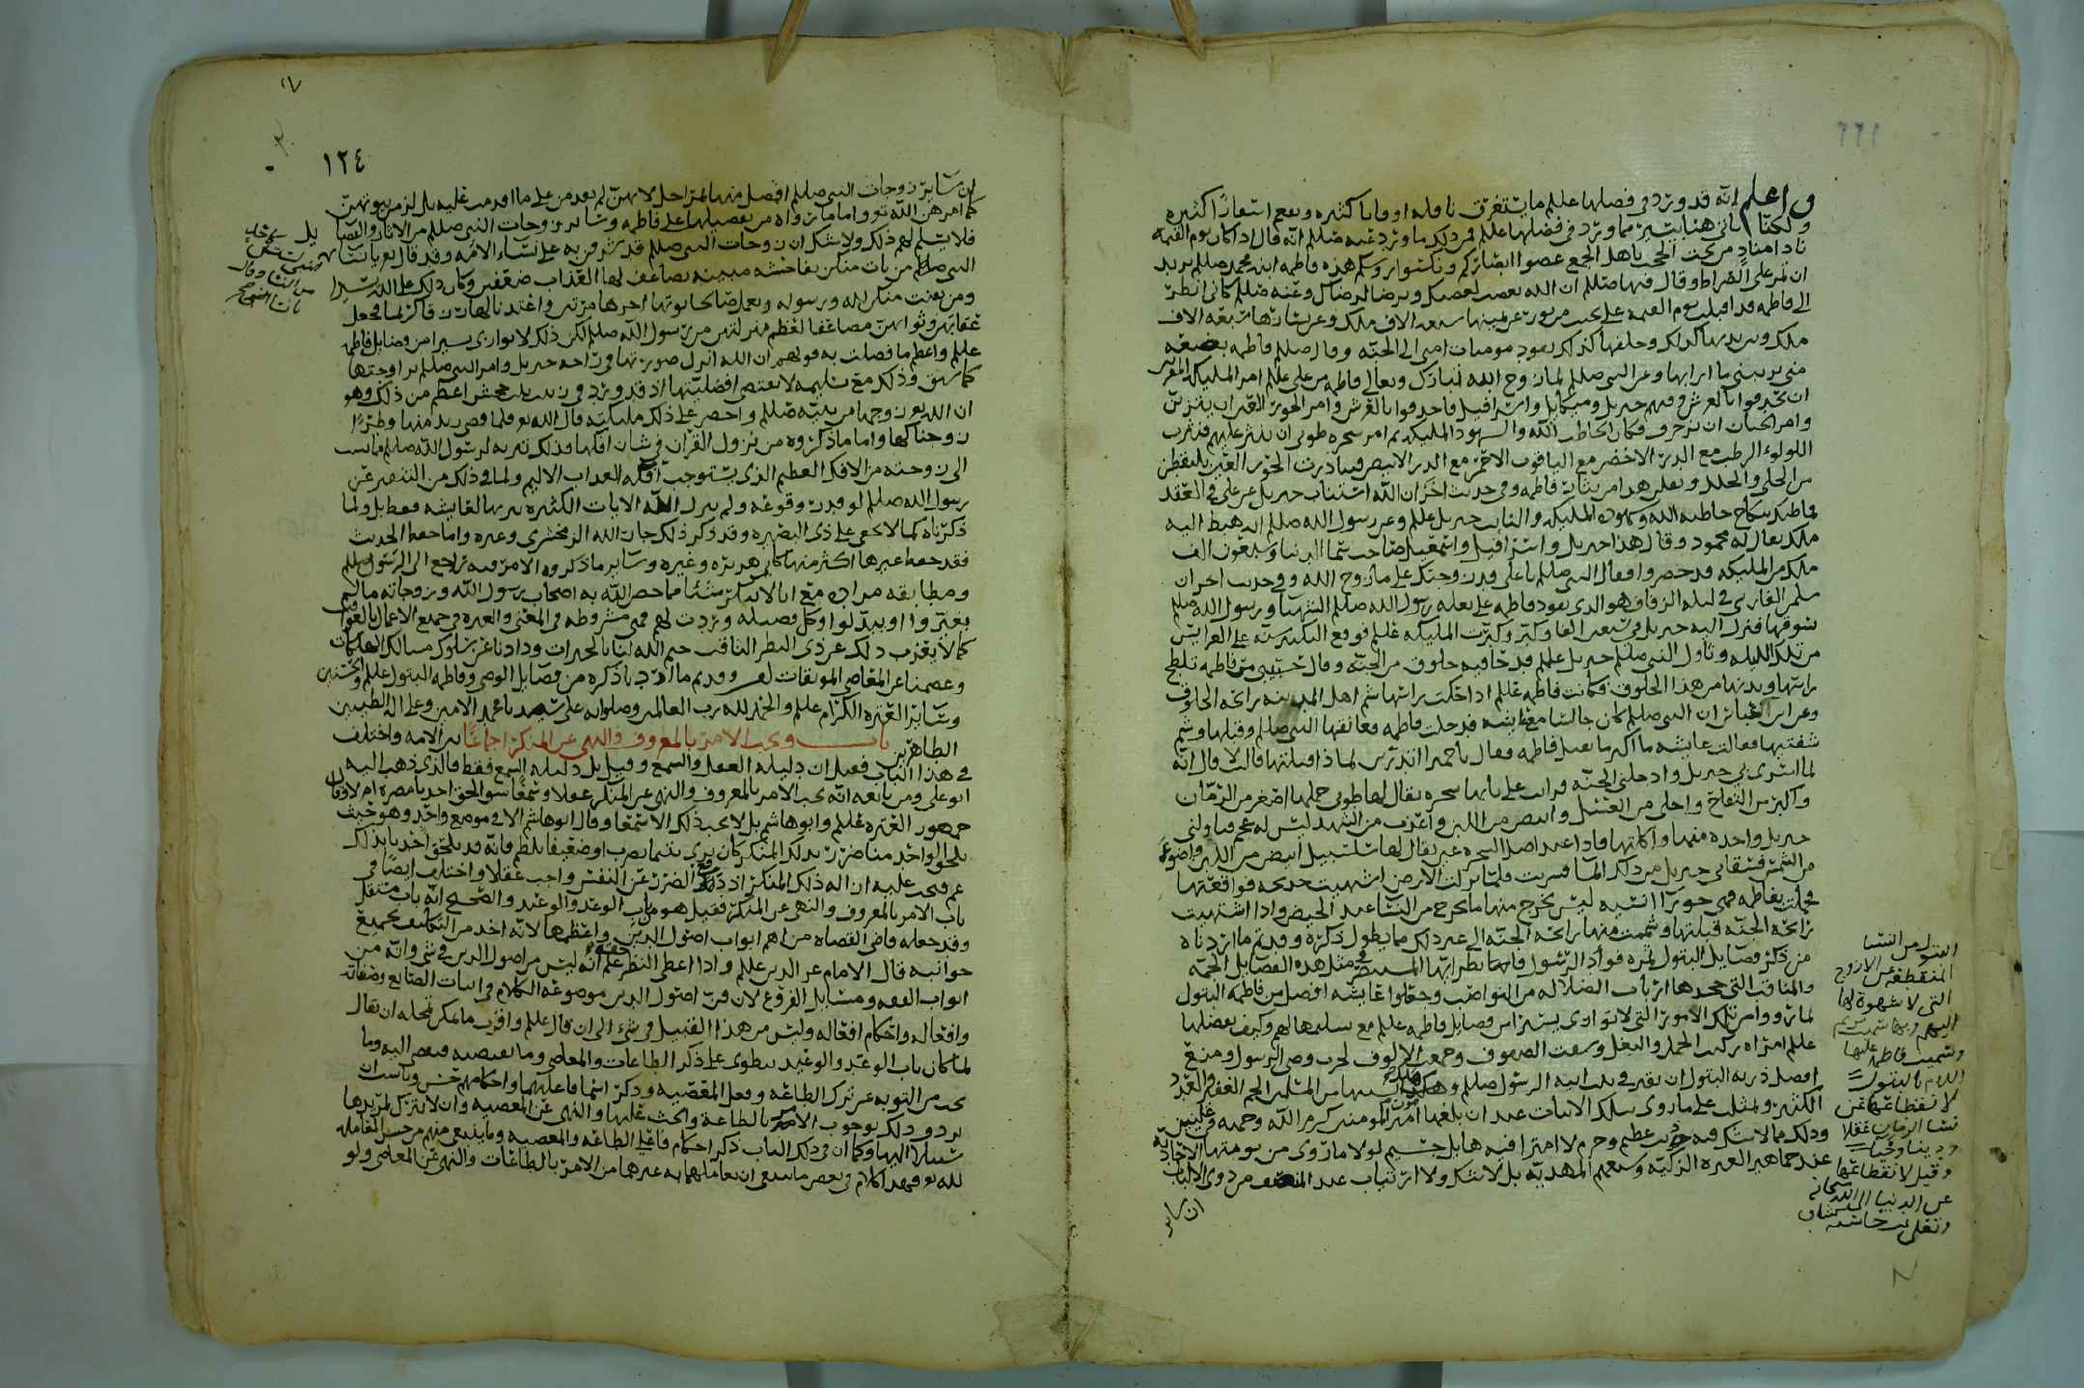 واعلم انه قد ورد في فضلها عللم ما يستغرق
ولكنا ناتي هنا بيسير مما ورد في فضلها عللم فمن ذلك ما ورد عنه صللم انه قال اذا كان يوم القيمة
نادا مناد من تحت الحجب يا هل الجمع غضوا ابصاركم ونكسوا روسكم هذه فاطمه ابنه محمد صللم تريد
ان تمر على الصراط وقال فيها صللم ان الله يغضب لغضبك ويرضا لرضاك وعنه صللم كاني انظر
الى فاطمه قد اقبلت يوم القيمة على نجيب من نور عن يمينها سبعه الاف ملك وعن يسارها سبعه الاف
ملك وبين يديها كذلك وخلفها كذلك تقود مومنات امتي الى الجنه وقال صللم فاطمه بضعه
مني يريبني ما ارابها وعن النبي صللم لما زوج الله تبارك وتعالى فاطمه من علي عللم امر المليكه المقربين
ان يحدقوا بالعرش وفيهم جبريل وميكايل واسرافيل فاحدقوا بالعرش وامر الحور العين ان يتزين
وامر الجنان ان تزخرف فكان الخاطب الله والشهود المليكه ثم امر شجره طوبى ان تنثر عليهم فنثرت
اللولو الرطب مع الدر الاخضر مع الياقوت الاحمر مع الدر الابيض فتبادرت الحور العين يلتقطن
من الحلي والحلل ويقلن هذا من نثار فاطمه وفي حديث اخر ان الله استناب جبريل عن علي في العقد
ملك يقال له محمود وقال هذا جبريل واسرافيل واسمعيل صاحب سما الدنيا وسبعون الف
ملك من المليكه قد حضروا فقال النبي صللم يا علي قد زوجتك على ما زوج الله وفي حديث اخر ان
سلمن الفارسي في ليله الزفاف هو الذي يقود فاطمه على بغله رسول الله صللم الشهبا ورسول الله صللم
يسوقها فنزل اليه جبريل في سبعين الفا وكبر وكبرت المليكه عللم فوقع التكبير سنه على العرايس
من تلك الليله وناول النبي صللم جبريل عللم قدحا فيه خلوق من الجنه وقال حبيبي مر فاطمه تلطخ
راسها وبدنها من هذا الخلوق فكانت فاطمه عللم اذا حكت راسها شم اهل المدينه رايحه الخلوق
وعن ابن عباس ان النبي صللم كان جالسا مع عايشه فدخلت فاطمه فعانقها النبي صللم وقبلها وشم
شفتيها فقالت عايشه ما اكثر ما تقبل فاطمه فقال يا حميرا اتدرين لما ذا قبلتها قالت لا قال انه
لما اسري بي جبريل وادخلني الجنه ورايت على بابها شجره يقال لها طوبى حملها اصغر من الرمان
واكبر من التفاح واحلى من العسل وابيض من اللبن واعذب من الشهد ليس له عجم فناولني
جبريل واحده منها واكلتها فاذا عند اصل الشجره عين يقال لها سلسبيل ابيض من اللبن واضوء
من الشمس فسقاني جبريل من ذلك الما فشربت فلما نزلت الارض اشتهيت خديجه فواقعتها
فحملت بفاطمه فهي حورا انسيه ليس يخرج منها ما يخرج من النسا عند الحيض واذا اشتهيت
رايحه الجنه قبلتها وشممت منها رايحه الجنه الى غير ذلك مما يطول ذكره وقد تم ما اردناه
من ذكر فضايل البتول ثمره فواد الرسول فانظر ايها المسترشد في مثل هذه الفضايل الجمه
والمناقب التي جحدها ارباب الضلاله من النواصب وجعلوا عايشه افضل من فاطمه البتول
لما رووا من تلك الامور التي لا توازي يسيرا من فضايل فاطمه عللم مع تسليمها لهم وكيف بفضلها
عللم امراه ركبت الجمل والبغل وسعت الصفوف وجمعت الالوف لحرب وصي الرسول ومنع
افضل ذريه البتول ان يقبر في بيت ابيه الرسول صللم وهلك بسببها من المسلمين الجم الغفير والعدد
الكثير وتمثل على ما روي بتلك الابيات عند ان بلغها موت امير المومنين كرم الله وجهه في عليين
وذلك مما لا شك فيه حوب عظيم وجرم لا امترا فيه هايل جسيم لولا ما روي من توبتها الاحاديه
عند جماهير العتره الزكيه وشيعتهم المهديه بل لا شك ولا ارتياب عند المنصف من ذوي الالباب
ان ساير
البتول من النسا
المنقطعه من الازوج
التي لا شهوة لها
اليهم وبها سميت مريم
وسميت فاطمه عليها
السلام بالبتول
لانقطاعها عن
نسا الزمان فضلا
ودينا وحسبا
وقيل لانقطاعها
عن الدنيا الى الله سبحانه
ونقل من حاشيه الكشاف
١٢٤
ان ساير زوجات النبي صللم افضل منها لمراحل لانهن لم يقدمن على ما اقدمت عليه بل لزمن بيوتهن
كما امرهن الله تع واما ما رواه من تفضيلها على فاطمه وساير زوجات النبي صللم من الاثار والقضايا
فلا يسلم لهم ذلك ولا شك ان زوجات النبي صللم قد شرفن به على نساء الامه وقد قال تع يا نسا
النبي من يات منكن بفاحشه مبينه يضاعف لها العذاب ضعفين وكان ذلك على الله يسيرا
ومن يقنت منكن لله ورسوله وتعمل صالحا نوتها اجرها مرتين واعتدنا لها رزقا كريما فجعل
عقابهن وثوابهن مضاعفا لعظم منزلتهن من رسول الله صللم لكن ذلك لا يوازي يسيرا من فضايل فاطمه
عللم واعظم ما فضلت به قولهم ان الله انزل صورتها في راحه جبريل وامر النبي صللم بزواجتها
كما سبق وذلك مع تسليمه لا يقتضي افضليتها اذ قد ورد في زينب بنت جحش اعظم من ذلك وهو
ان الله تع زوجها من نبيه صللم واحضر على ذلك مليكته قال الله تع فلما قضى زيد منها وطرا
زوجناكها واما ما ذكروه من نزول القران في شان افكها فذلك تنزيه لرسول الله صللم
الى زوجته من الافك العظيم الذي يستوجب افكه العذاب الاليم ولما في ذلك من التنفير عن
رسول الله صللم لو قدر وقوعه ولم ينزل الله الايات الكثيره تنزيها لعايشه فقط بل ولما
ذكرناه كما لا يخفى على ذي البصيره وقد ذكر ذلك جار الله الزمخشري وغيره واما حفظ الحديث
فقد حفظ غيرها اكثر منها كابي هريره وغيره وساير ما ذكروه الامر فيه راجع الى الرسول صللم
مع انا لا ننكر شيئا مما خص الله به اصحاب رسول الله وزوجاته ما لم
يغيروا او يبدلوا وكل فضيله وردت لهم فهي مشروطه في المعنى والعبره في جميع الاعمال بالعواقب
كما لا يعزب ذلك عن ذي النظر الثاقب ختم الله لنا بالخيرات وذادنا عن سلوك مسالك الهلكات
وعصمنا عن المعاصي الموبقات وقد تم ما اردنا ذكره من فضايل الوصي وفاطمه البتول عللم والحسنين
وساير العتره الكرام عللم والحمد لله رب العالمين وصلواته على سيدنا محمد الامين وعلى اله الطيبين
الطاهرين باب ويجب الامر بالمعروف والنهي عن المنكر اجماعا بين الامه واختلف
في هذا الباب فقيل ان دليله العقل والسمع وقيل بل دليله السمع فقط فالذي ذهب اليه
ابو علي ومن تابعه انه يجب الامر بالمعروف والنهي عن المنكر عقلا وسمعا سوا لحق احدا مضره ام لا وقال
جمهور العتره عللم وابو هاشم بل لا يجب ذلك الا سمعا وقال ابو هاشم الا في موضع واحد وهو حيث
يلحق الواحد منا ضرر بذلك المنكر كان يرى يتيما يضرب او ضعيفا يظلم فانه قد يلحق احدنا بذلك
غم فيجب عليه ازاله ذلك المنكر اذ دفع الضرر عن النفس واجب عقلا واختلف ايضا في
باب الامر بالمعروف والنهي عن المنكر فقيل هو من باب الوعد والوعيد والصحيح انه باب مستقل
وقد جعله قاضي القضاه من اهم ابواب اصول الدين واعظمها لانه اخذ من التكليف بجميع
جوانبه قال الامام عز الدين عللم واذا اعطي النظر حقه علم انه ليس من اصول الدين في شي وانه من
ابواب الفقه ومسايل الفروع لان فن اصول الدين موضوعه الكلام في اثبات الصانع وصفاته
وافعاله واحكام افعاله وليس من هذا القبيل في شيء الى ان قال عللم واقرب ما يمكن تمحله ان يقال
لما كان باب الوعد والوعيد ينطوي على ذكر الطاعات والمعاصي وما تقتضيه وتفضي اليه وما
يجب من التوبه عن ترك الطاعه وفعل المعصيه وذكر اسما فاعليهما واحكامهم حسن وناسب ان
يردف ذلك بوجوب الامر بالطاعة والحث عليها والنهي عن المعصيه وان لا يترك لمن يريدها
سبيلا اليها وكما ان في ذلك الباب ذكر احكام فاعلي الطاعه والمعصيه وما ينبغي منهم من حسن المعامله
لله تع فهذا كلام في بعض ما ينبغي ان يعاملهما به غيرهما من الامر بالطاعات والنهي عن المعاصي ولو